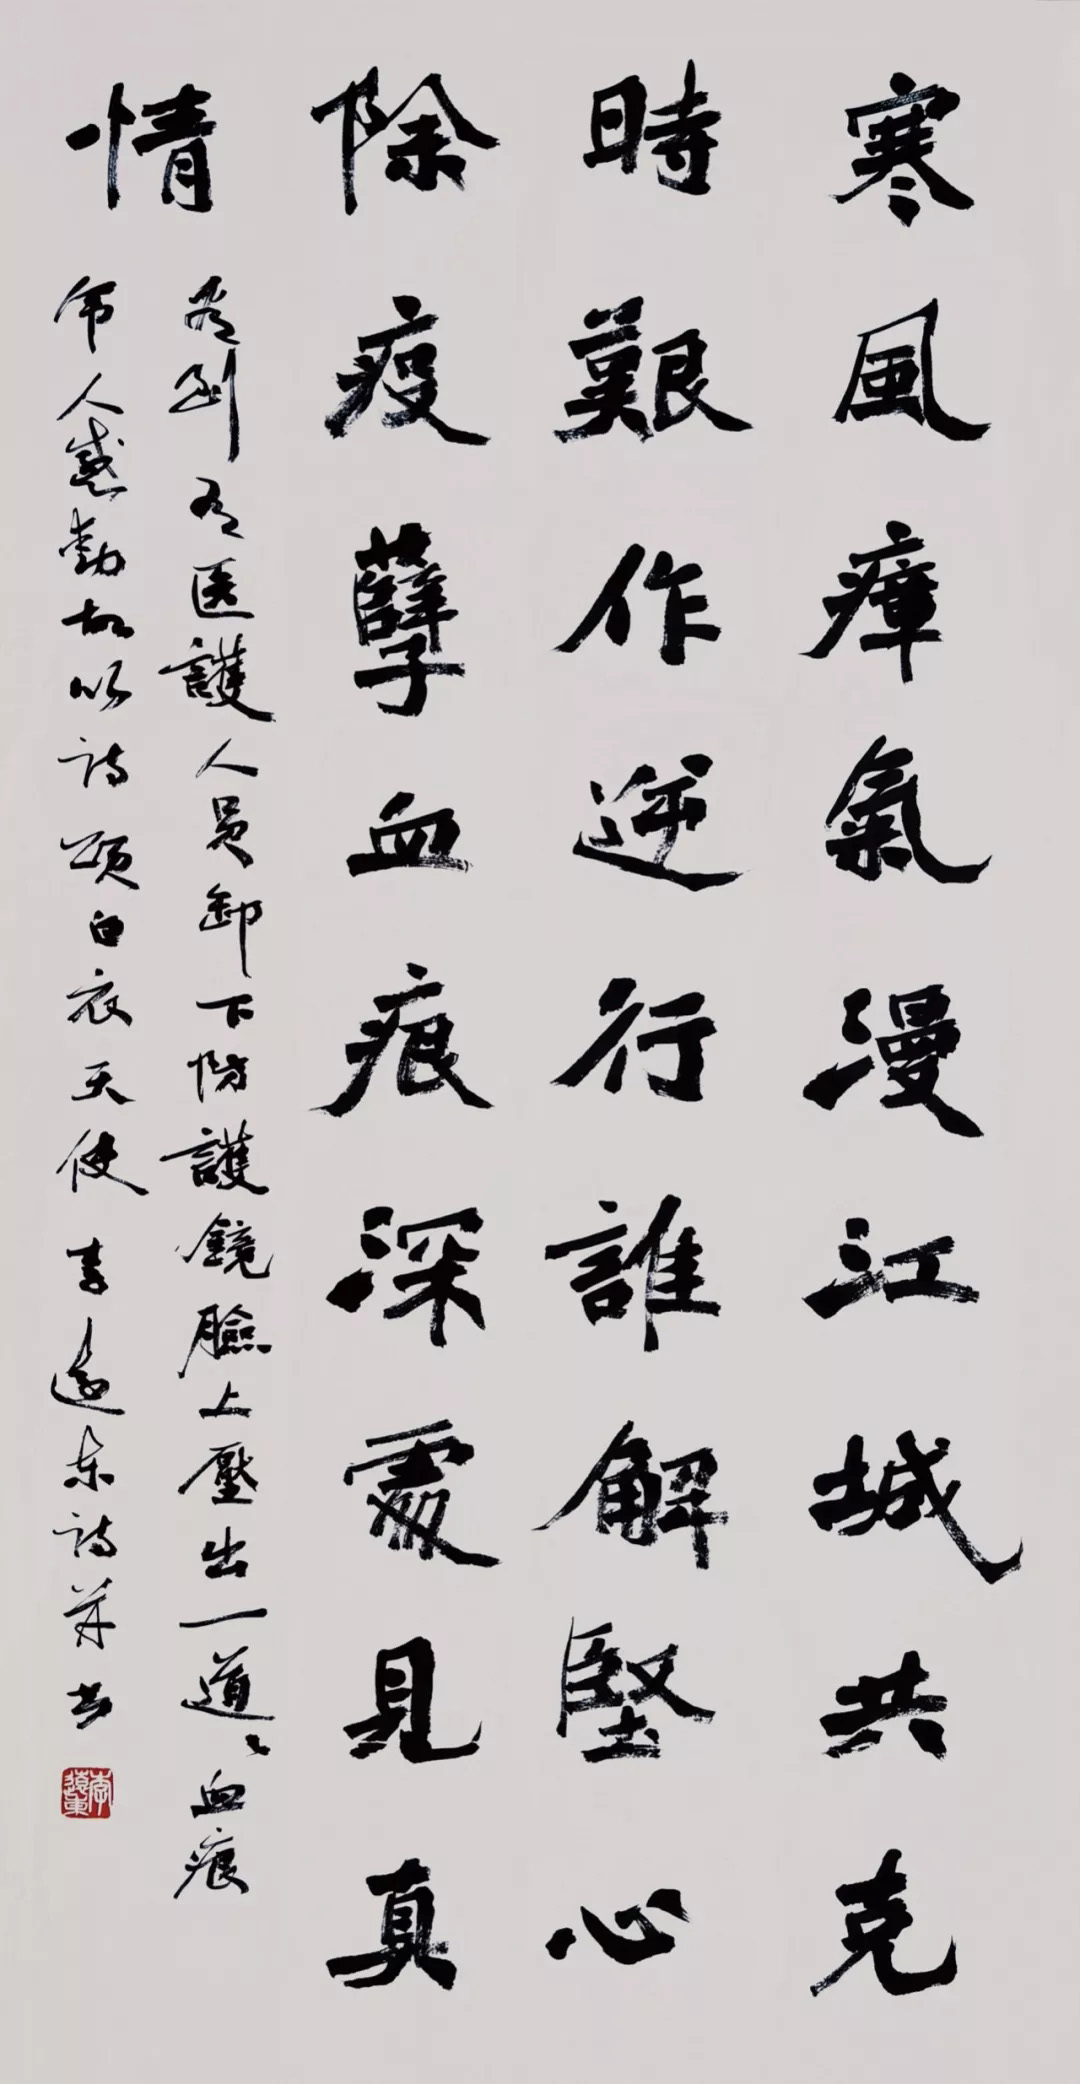 寒風瘴氣漫江城共克
時艱作逆行誰解堅心
除疫孽血痕深處見真
情
看到有医護人员卸下防護鏡臉上壓出一道々血痕
令人感動故以诗颂白衣天使李遠东诗并书
李遠東